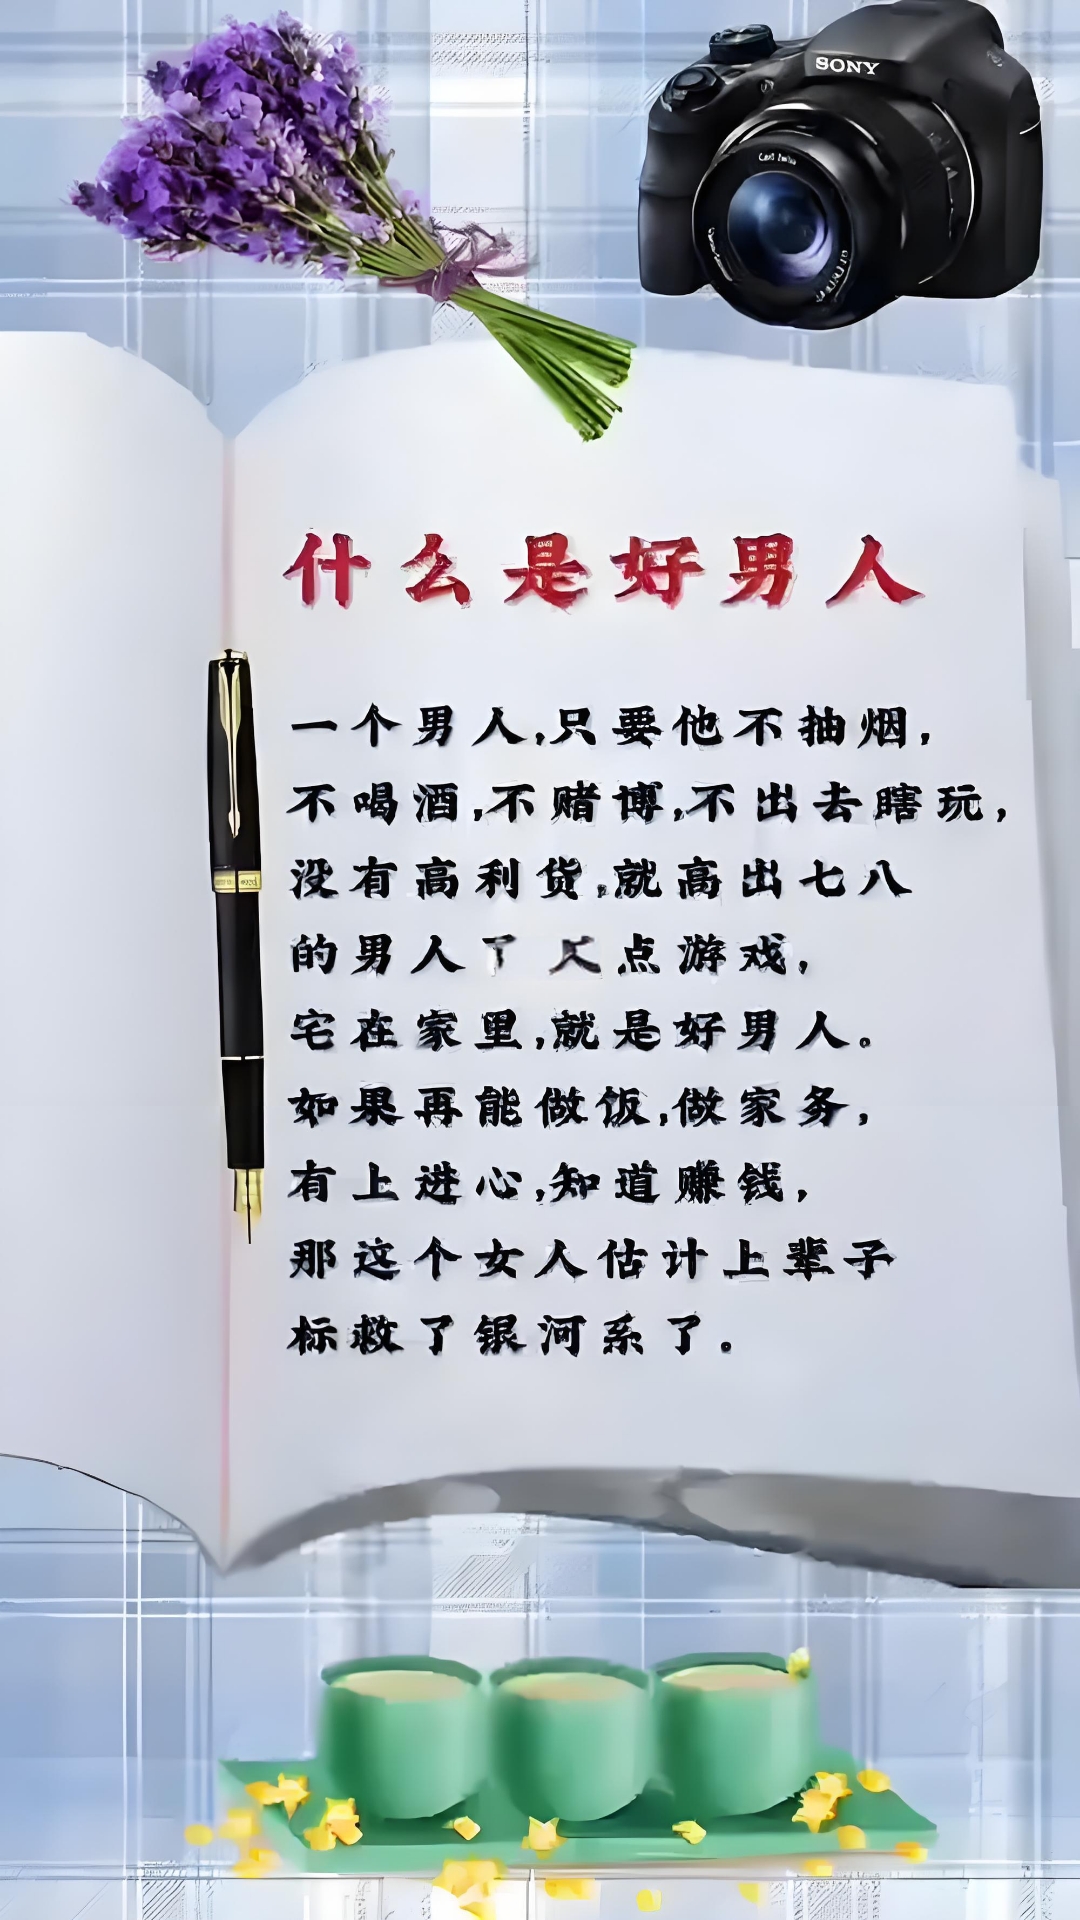 SONY
什么是好男人
一个男人,只要他不抽烟,
不喝酒,不赌博,不出去瞎玩,
没有高利贷,就高出七八
的男人了 点游戏,
宅在家里,就是好男人。
如果再能做饭,做家务,
有上进心,知道赚钱,
那这个女人估计上辈子
标救了银河系了。